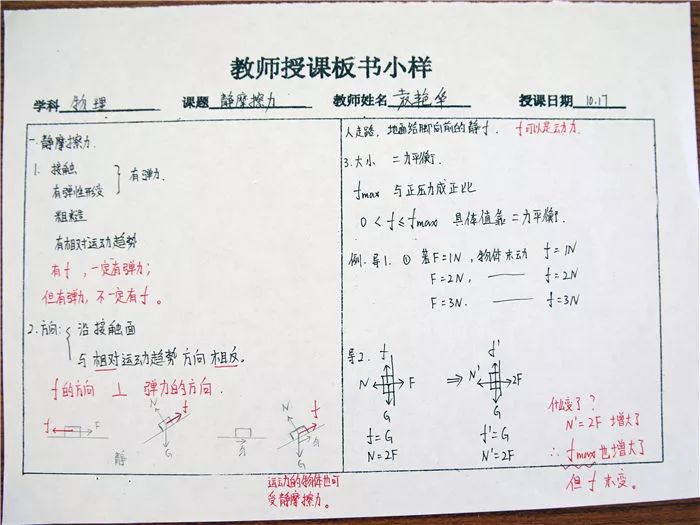 教师授课板书小样
学科 物理 课题 静摩擦力 教师姓名 袁艳华 授课日期 10.17
一. 静摩擦力.
1. 接触
有弹性形变 } 有弹力.
粗糙
有相对运动趋势
有f，一定有弹力；
但有弹力，不一定有f。
2. 方向: { 沿接触面
与相对运动趋势方向相反.
f的方向 ⊥ 弹力的方向.
f F
N f G
G
N f G
静
运动的物体也可
受静摩擦力.
人走路. 地面给脚向前的静f. f可以是动力.
3. 大小 二力平衡.
fmax 与正压力成正比
0 < f ≤ fmax 具体值靠二力平衡.
例. 导1. ① 若F=1N, 物体未动 f=1N
F=2N, —— f=2N
F=3N. —— f=3N
导2.
f f'
N F ⇒ N' 2F
G G
f=G f'=G
N=2F N'=2F
什么变了？
N'=2F 增大了
∴ fmax也增大了
但 f 未变.